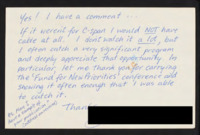 Yes! I have a comment...
If it weren't for C-Span I would NOT have
cable at all. I don't watch it a lot, but
I often catch a very significant program
and deeply appreciate that opportunity. In
particular, let me thank you for carrying
the "Fund for New Priorities" conference and
showing it often enough that I was able
to catch it.
Thank